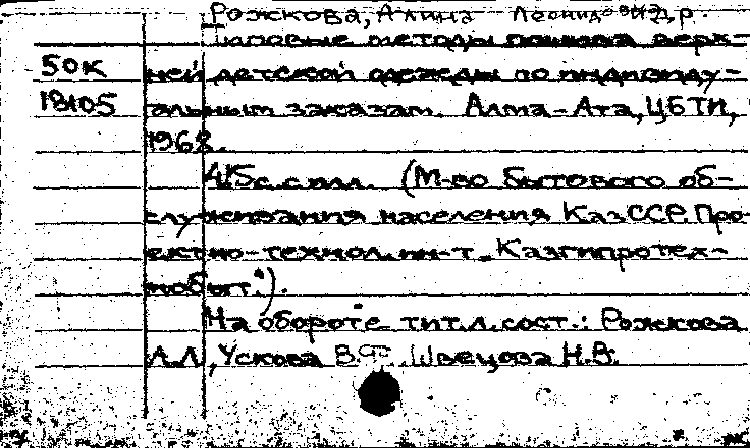 Рожкова, Алина Леонидовна, др.
Типовые методы пошива верх-
50к ней детской одежды по индивиду-
18105 альным заказам. Алма-Ата, ЦБТИ,
1968.
415с. с илл. (М-во бытового об-
служивания населения КазССР. Про-
ектно-технол. ин-т „Казгипротех-
нобыт").
На обороте тит.л. сост.: Рожкова
А.Л., Ускова В.Ф. Швецова Н.В.